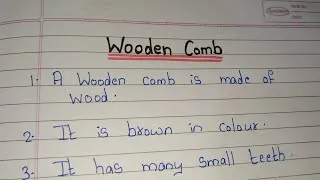 Wooden Comb
1. A Wooden comb is made of
wood.
2. It is brown in colour.
3. It has many small teeth.